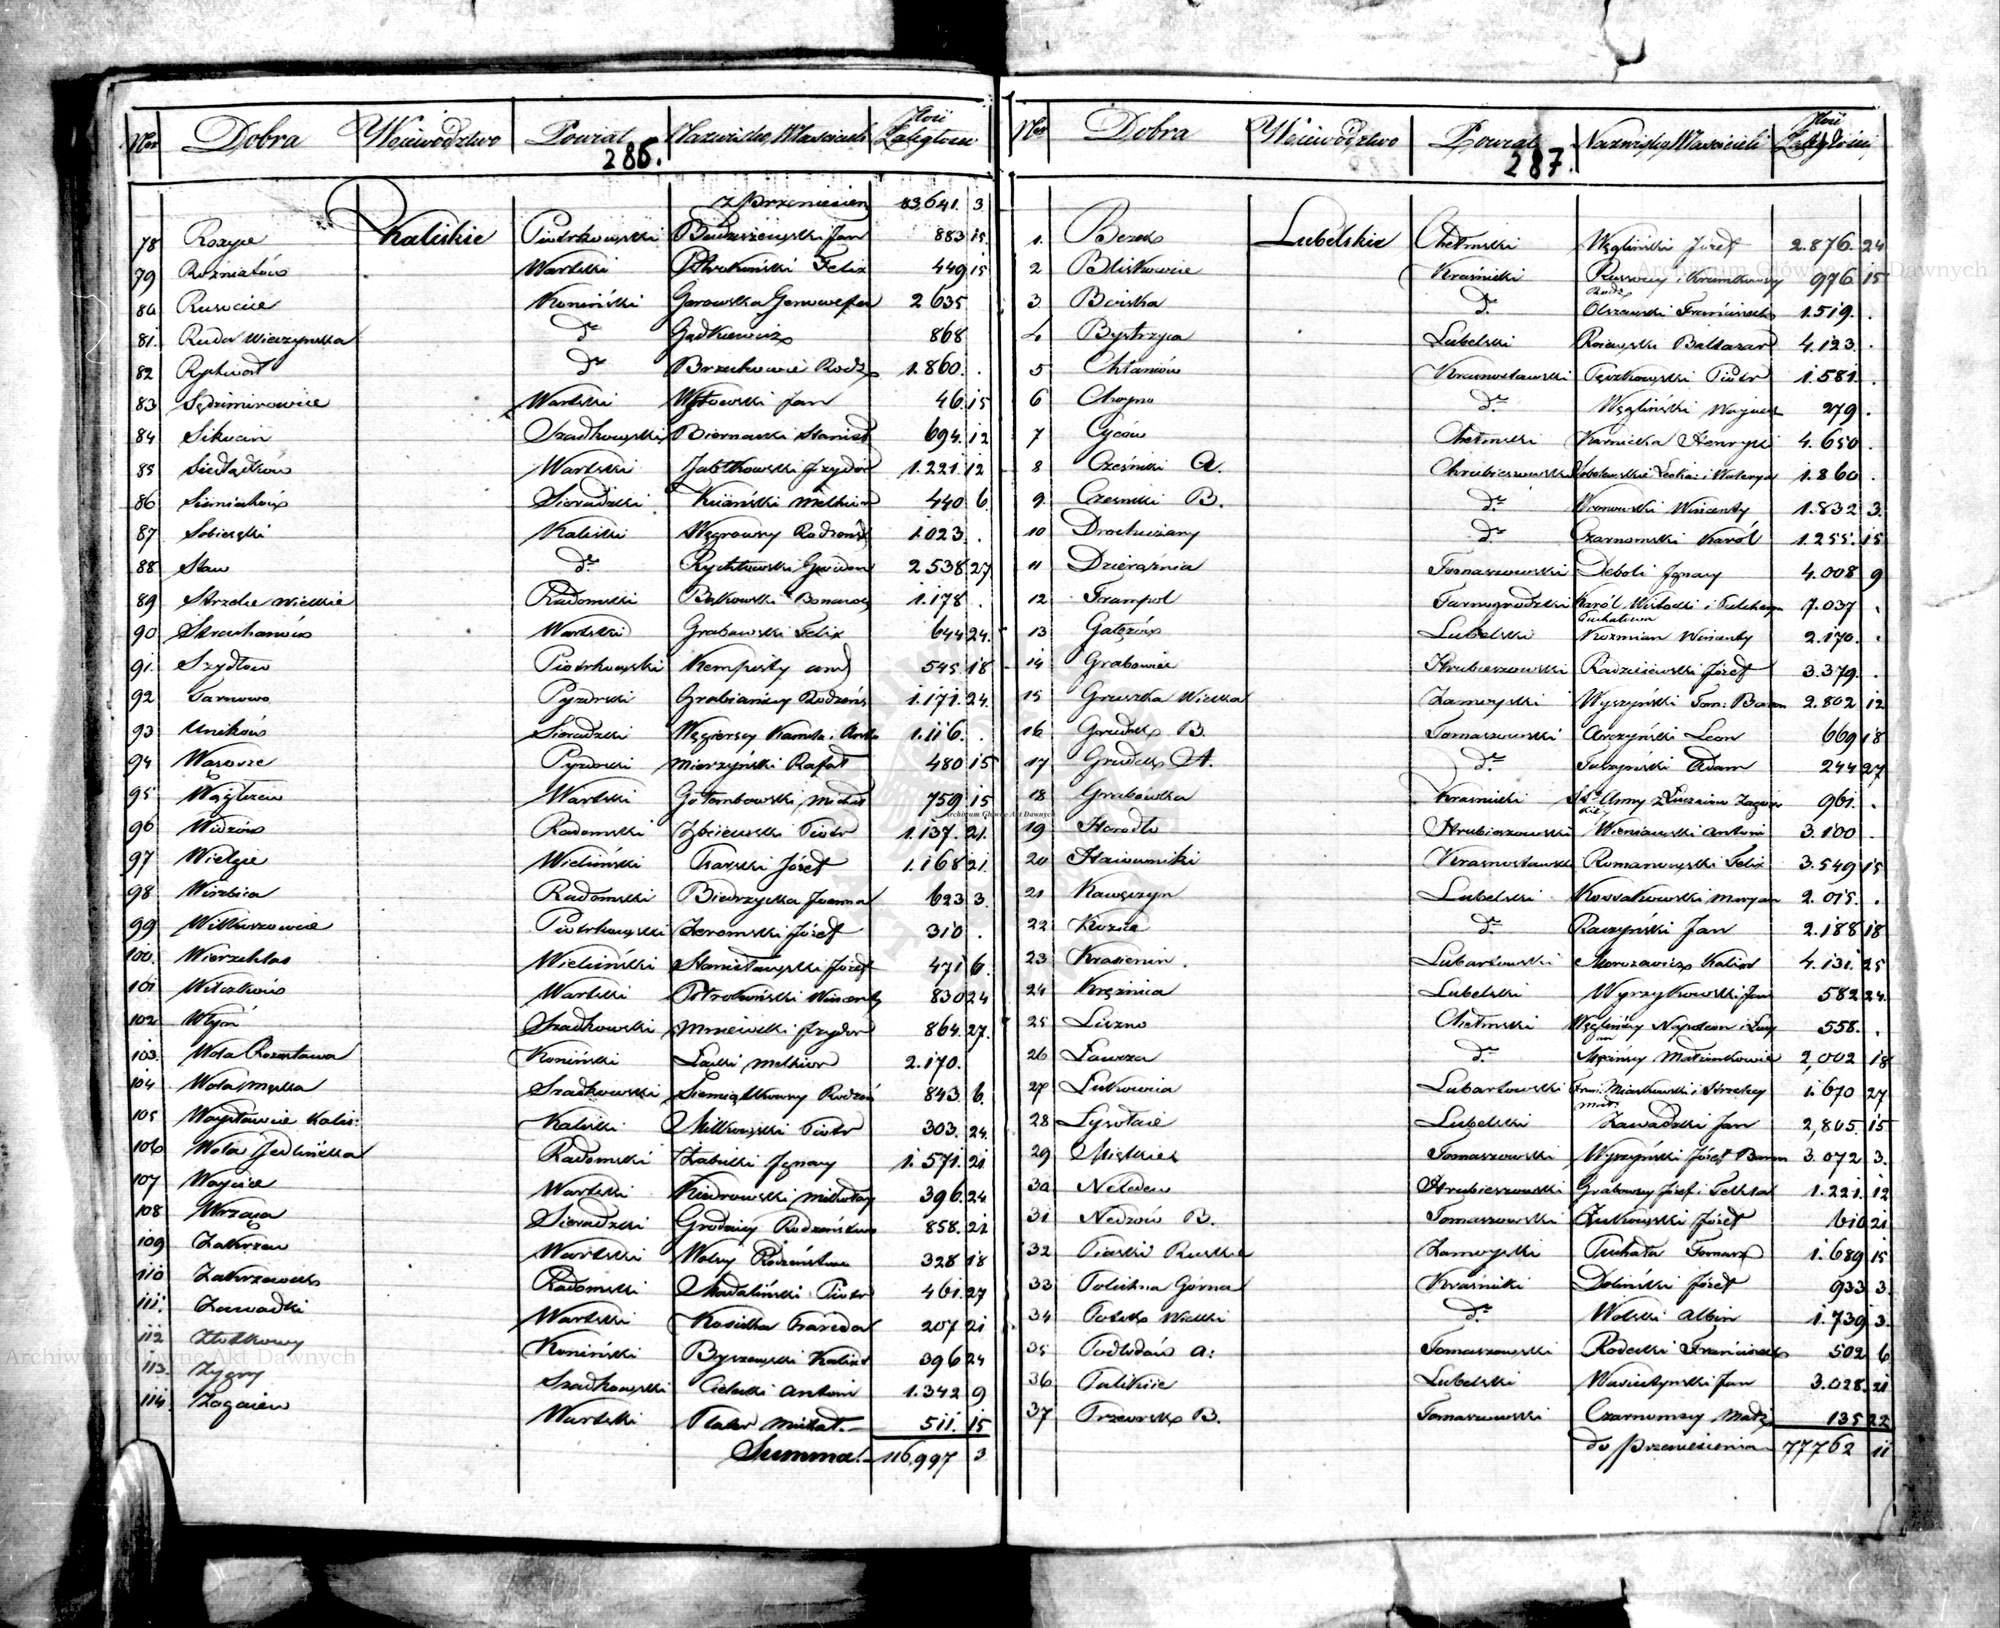 Nro Dobra Województwo Powiat Nazwisko Właścicieli Ilość Zaległości
286.
z przeniesien 83,641. 3
78 Rozpe Kaliskie Piotrkowski Jan 883 15
79 Rozniatów Wartski Felix 449 15
80 Rusocice Koniński Gorowska Genowefa 2 635
81. Ruda Wieczyńska dto Gadkiewicz 868
82 Rychwał dto Brzuchowie Rodz 1.860. .
83 Sędzimirowice Wartski Jan 46. 15
84 Sikucin Szadkowski Biernawski Stanisł 694. 12
85 Siedlątków Wartski Jabłkowski Izydor 1.221. 12
86 Siemiechów Sieradzki Melkior 440 6
87 Sobiesęki Kaliski Węgrowsy Rodzeńs 1.023. .
88 Staw dto Rychłowski Gwidon 2 538 27
89 Strzelce Wielkie Radomski Bonawen 1.178 .
90 Strachanów Wartski Grabowski Felix 644 24.
91. Szydłow Piotrkowski Kempisty and 545. 18
92 Tarnowo Pyzdrski Grabiańscy Rodzeńs 1.171. 24.
93 Uników Sieradzki Węgierscy Kamila i 1.116. .
94 Wąsosze Pyzdrski Mierzyński Rafał 480 15
95 Wągłczew Wartski Gołembowski Michał 759. 15
96 Widzów Radomski Zbijewski Piotr 1.137. 21.
97 Wielgie Wieluński Trarski Józef 1.168 21.
98 Wierzbica Radomski Biedrzycka Joanna 623 3.
99 Witkuszowice Piotrkowski Zeromski Józef 310 .
100. Wierzchlas Wieluński Stanisławski Józef 471 6.
101 Witczków Wartski Potrowiński Wincenty 830 24
102 Włyń Szadkowski Mniewski Izydor 864. 27.
103. Wola Rozostawa Koniński Łącki Melkior 2.170.
104 Wola Męcka Szadkowski Siemiątkowscy Rodzeń 843. 6.
105 Woysławice Kalis: Kaliski Miłkowski Piotr 303. 24.
106 Wola Jedlińska Radomski Załuski Ignacy 1.571. 21
107 Woycice Wartski Kiedrowski Mikołay 396. 24
108 Wrząca Sieradzki Grodziccy Rodzeństwo 858. 21
109 Zakrzew Wartski Wolscy Rodzeństwo 328 18
110 Zakrzówek Radomski Madaliński Piotr 461. 27
111. Zawadki Wartski Kosicka 207 21
112 Złotkowy Koniński Byszewski Kalixt 396 24
113. Zygry Szadkowski Cielecki Antoni 1.342 9
114. Zagajew Wartski Plater Michał. 511. 15
Summa. 116,997 3
Nro Dobra Województwo Powiat Nazwisko Właścicieli Ilość Zaległości
287.
1. Bezek Lubelskie Chełmski Węgliński Józef 2.876. 24
2 Bliskowice Kraśnicki Russocy i Krumkowscy 976 15
Rodz
3 Boiska dto Olszewski Franciszek 1.519. .
4 Bystrzyca Lubelski Roiewski Baltazar 4.123. .
5 Chłaniów Krasnostawski Tęczkowski Piotr 1.581. .
6 Choyno dto Węgliński Woyciech 279 .
7 Cyców Chełmski Karnicka Henryka 4.650 .
8 Cześniki A. Chrubieszowski i Waleryi 1.860 .
9. Czesniki B. dto Wronowski Wincenty 1.832 3.
10 Drochiczany dto Czarnomski Karól 1.255. 15
11 Dzierąznia Tomaszowski Deboli Ignacy 4.008 9
12 Frampol Tarnogrodzki Karól Wisłocki i 7.037 .
13 Gałęzów Lubelski Kozmian Wincenty 2.170. .
14 Grabowiec Hrubieszowski Radziejewski Józef 3.379. .
15 Gruszka Wielka Zamoyski Wyszyński Fran: Baron 2.802 12
16 Grudek B. Tomaszowski Arczyński Leon 669 18
17 Grudek A. dto Tuszyński Adam 244 27
18 Grabówka Krasnicki Anny z 961. .
19 Horodło Hrubieszowski Wieniawski Antoni 3.100 .
20 Krasnostawski Romanowski Felix 3.549 15
21 Kawęczyn Lubelski Kossakowski Maryan 2.015. .
22 Kozice dto Raczyński Jan 2.188 18
23 Krasienin. Lubartowski Morozewicz Kalixt 4.131. 25
24 Krężnica Lubelski Wyrzykowski Jan 582 24.
25 Liszno Chełmski Węglińscy Napoleon i 558. .
26 Ławcza dto Małżonkowie 2,002 18
27 Łukowica Lubartowski Miaskowski i 1.670 27
28 Łysołaie Lubelski Zawadzki Jan 2,805. 15
29 Miękkie Tomaszowski Wyszyński Józef Baron 3.072 3.
30 Neledew Hrubieszowski Grabowscy Józef i Tekla 1.221. 12
31 Nedzów B. Tomaszowski Żukowski Józef 610 21
32 Piaski Ruskie Zamoyski Puchała Tomasz 1.689 15
33 Polichna Górna Kraśnicki Doliński Józef 933 3.
34 Potok Wielki dto Wolski Albin 1.739 3.
35 Podlodów A: Tomaszowski Radecki Franciszek 502 6
36 Palikiie Lubelski Wasiutyński Jan 3.028. 21
37 Przeorsk B. Tomaszowski Czarnomscy Małż 135 22
do przeniesienia 77762 11
Archiwum Główne Akt Dawnych
Archiwum Główne Akt Dawnych
Archiwum Główne Akt Dawnych